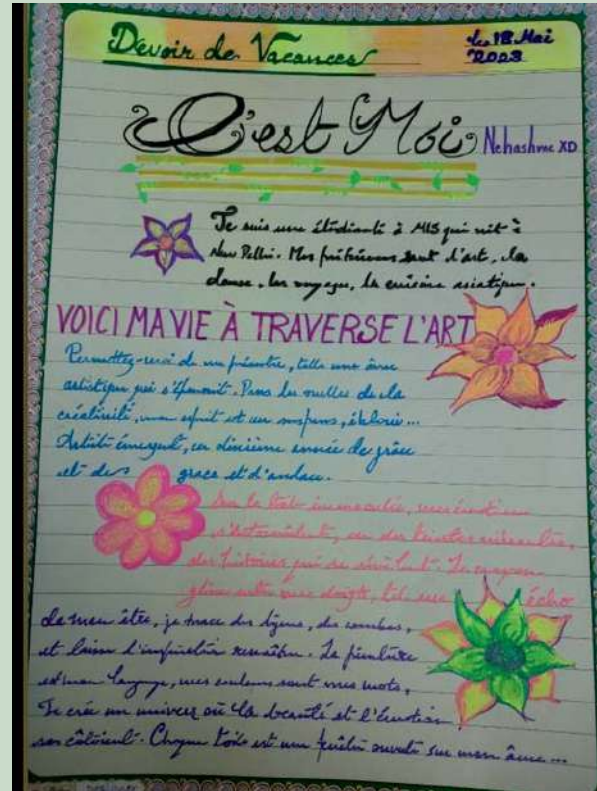 Devoir de Vacances
le 18 Mai
2023
C'est Moi
Nehashree XD
Je suis une étudiante à MIS qui vit à
New Delhi. Mes préférences sont d'art, la
danse, les voyages, la cuisine asiatique.
VOICI MA VIE À TRAVERSE L'ART
Permettez-moi de me présenter, telle une âme
artistique qui s'épanouit. Dans les ruelles de la
créativité, mon esprit est en suspens, ébloui...
Artiste émergent, en dixième année de grâce
et de grace et d'audace.
Sur la toile immaculée, mes émotions
s'entremêlent, en des teintes
des histoires qui se révèlent. Le crayon
glisse entre mes doigts, tel un écho
de mon être, je trace des lignes, des courbes,
et laisse l'inspiration renaître. La peinture
est mon langage, mes couleurs sont mes mots,
Je crée un univers où la beauté et l'émotion
Chaque toile est une fenêtre ouverte sur mon âme...